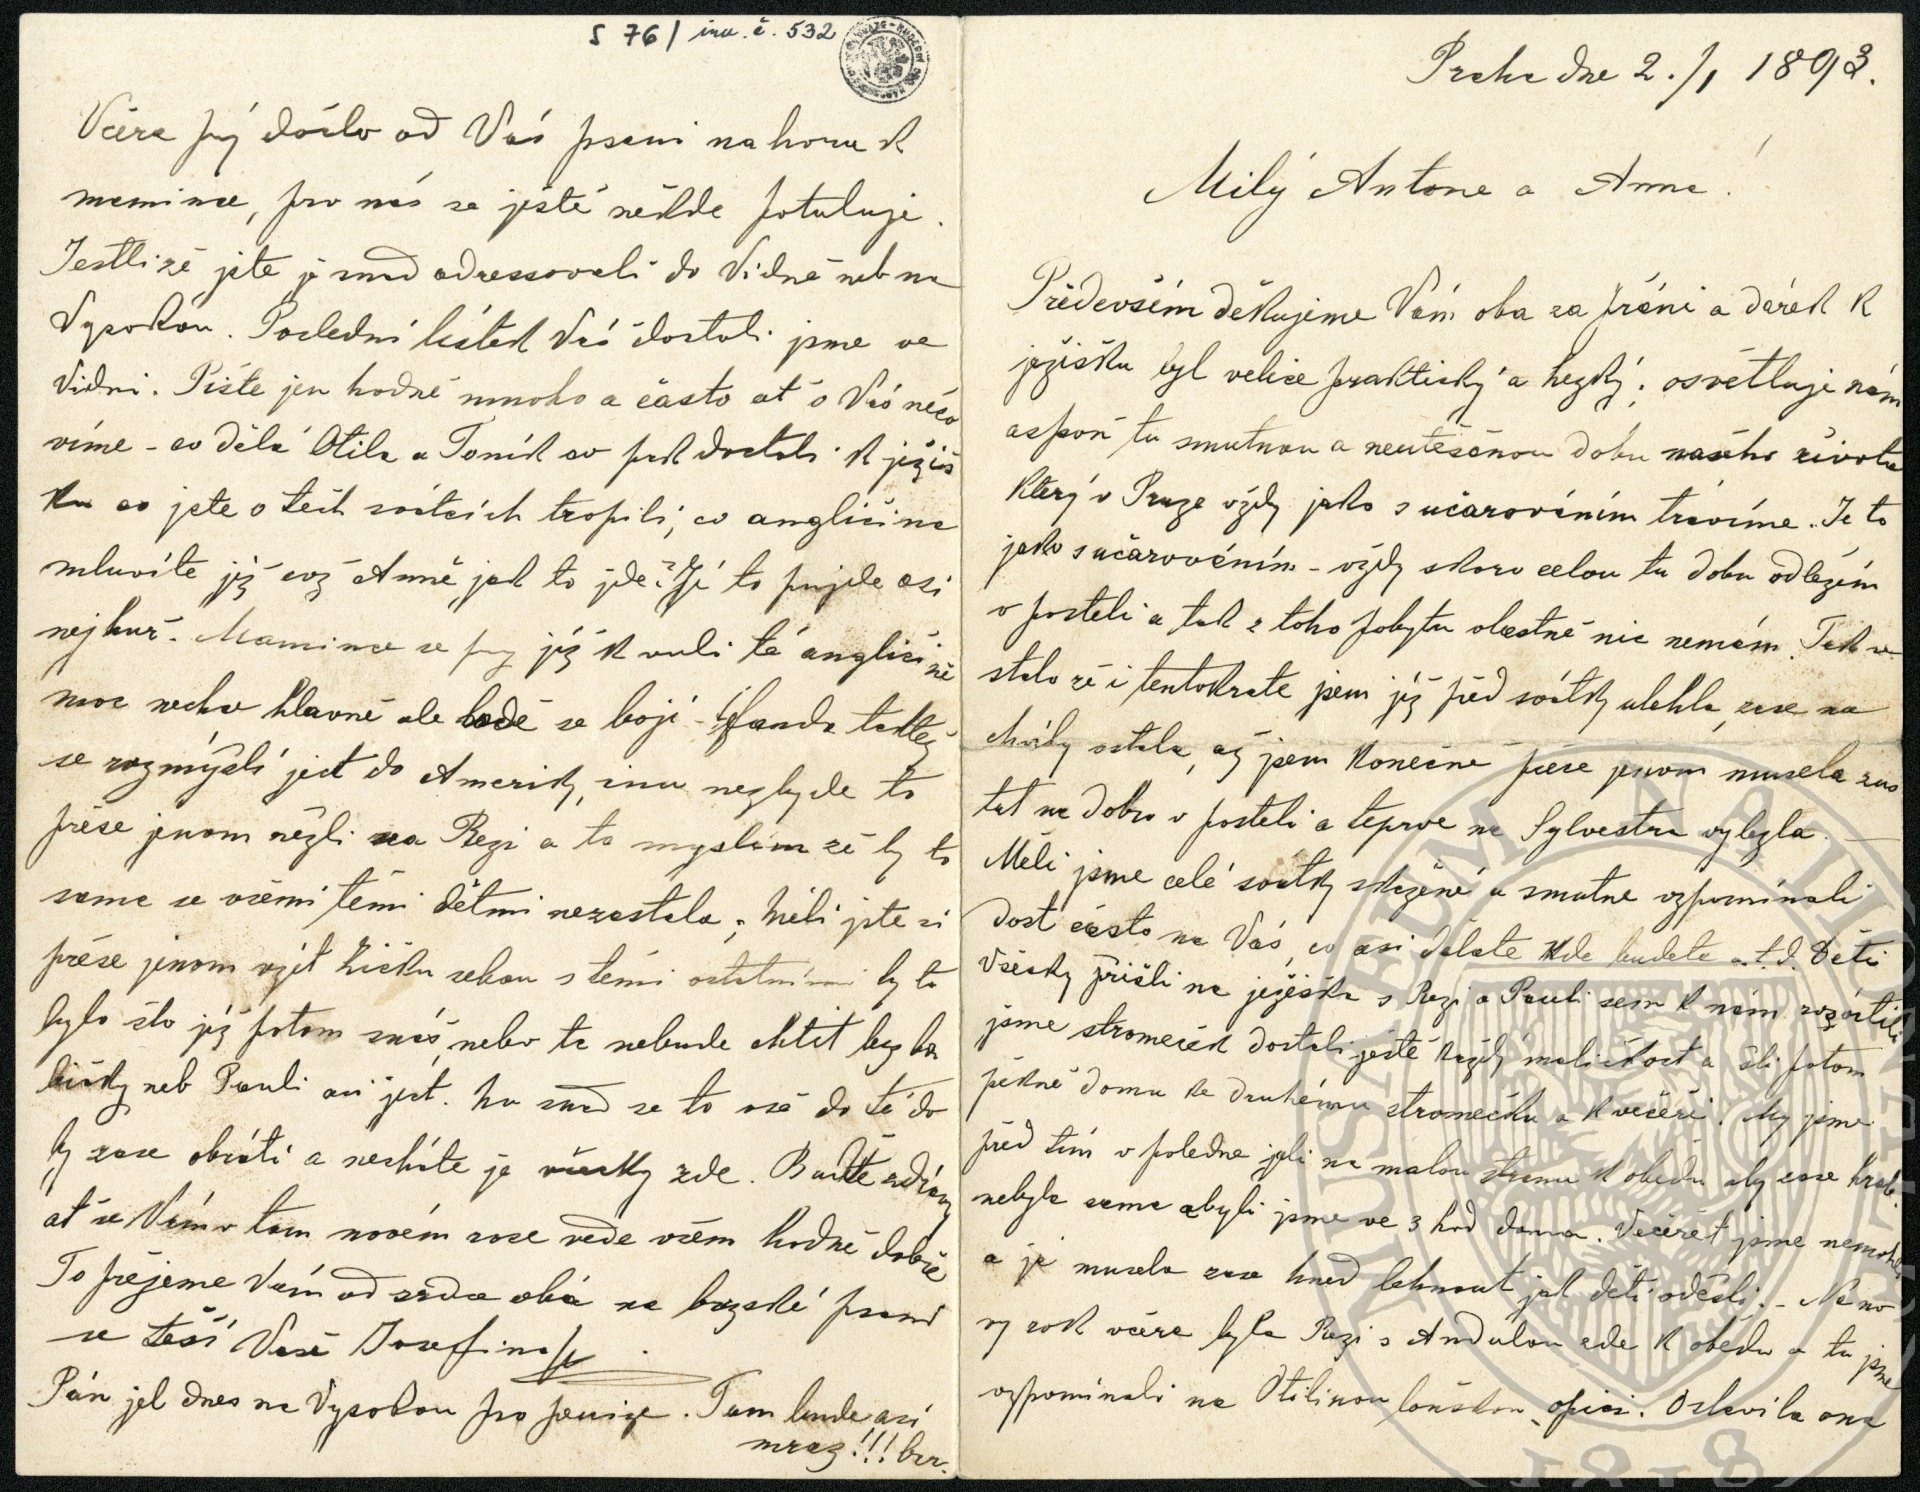 Praha dne 2./1 1893.
Milý Antone a Anno!
Předevšém děkujeme Vám oba za přáni a dárek k
ježišku byl velice praktický a hezký; osvětluje nám
aspoň tu smutnou a neutěšenou dobu našeho života
který v Praze vždy jako s učarováním trávíme. Je to
jako s učarováním – vždy skoro celou tu dobu odležím
v posteli a tak z toho pobytu vlastně nic nemám. Tak se
stalo že i tentokrate jsem jíž před svátky ulehla, zase na
chvíly vstala, až jsem konečně přece jenom musela zůs
tat na dobro v posteli a teprve na Sylvestra vylezla. –
Měli jsme celé svátky skažené a smutne vzpomínali
dost často na Vás, co asi děláte kde budete a.t.d. Děti
všecky přišli na ježiška s Rezi a Pauli sem k nám rozsvítili
jsme stromeček dostali ještě každý maličkost a šli potom
pěkně domu ke druhému stromečku a k večeři. My jsme
před tím v poledne jeli na malou stranu k obědu aby zase hrab.
nebyla sama a byli jsme ve 3 hod doma. Večeřet jsme nemohli
a já musela zase hned lehnout jak děti odešli. – Na no
vý rok včera byla Rezi s Andulou zde k obědu a tu jsme
vzpomínali na Otilinou loňskou opici. Oslavila ona
S 76/ inv. č. 532
Včera prý došlo od Vás psani nahoru k
mamince, pro nás se ještě někde potuluje.
Jestliže jste je snad adressovali do Vidně neb na
Vysokou. Poslední lístek Váš dostali jsme ve
Vidni. Pište jen hodně mnoho a často ať o Vás něco
víme – co dělá Otila a Toník co pak dostali k ježiš
ku co jste o těch svátcích tropili, co angličina
mluvíte jíž což Anně jak to jde? Jí to pujde asi
nejhuř. Mamince se prý jíž k vuli té angličině
moc nechce hlavně ale lodě se bojí – Fanda taktéž
se rozmýšlí jet do Ameriky, inu nezbyde to
přece jenom něžli na Rezi a to myslím že by to
sama se všemi těmi dětmi nezastala; měli jste si
přece jenom vzít Zišku sebou s těmi ostatními by to
bylo šlo jíž potom snáš, nebo ta nebude chtít bez ba
bičky neb Pauli ani jet. Nu snad se to vše do té do
by zase obrátí a necháte je všecky zde. Buďte zdrávy
ať se Vám v tom novém roce vede všem hodně dobře
To přejeme Vám od srdce oba na brzské psaní
se těší Vaše Josefina
Pán jel dnes na Vysokou pro peníze. Tam bude asi
mraz!!! brr.
MUSAEUM NATIONALE
1818